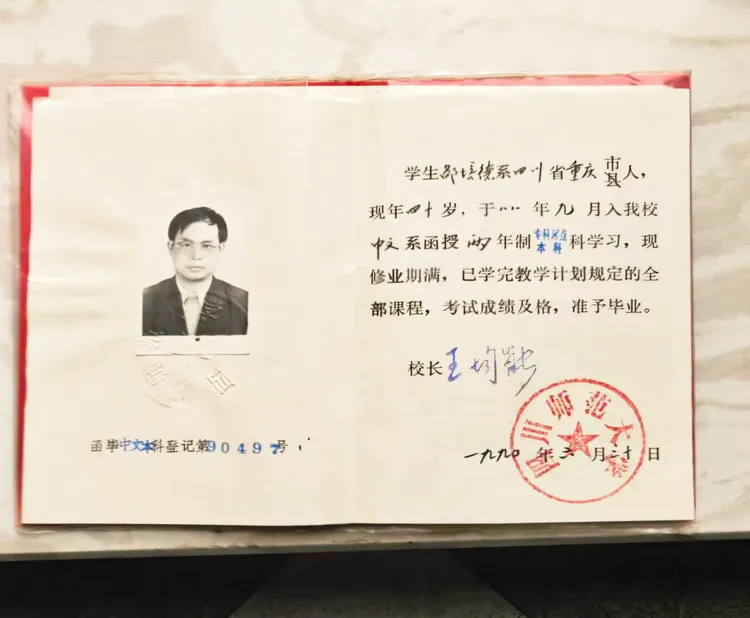 函毕中文本科登记第90497号
学生邹培德系四川省重庆市县人，
现年四十岁，于八八年九月入我校
中文系函授两年制专科起点本科科学习，现
修业期满，已学完教学计划规定的全
部课程，考试成绩及格，准予毕业。
校长王均能
四川师范大学
一九九〇年六月三十日